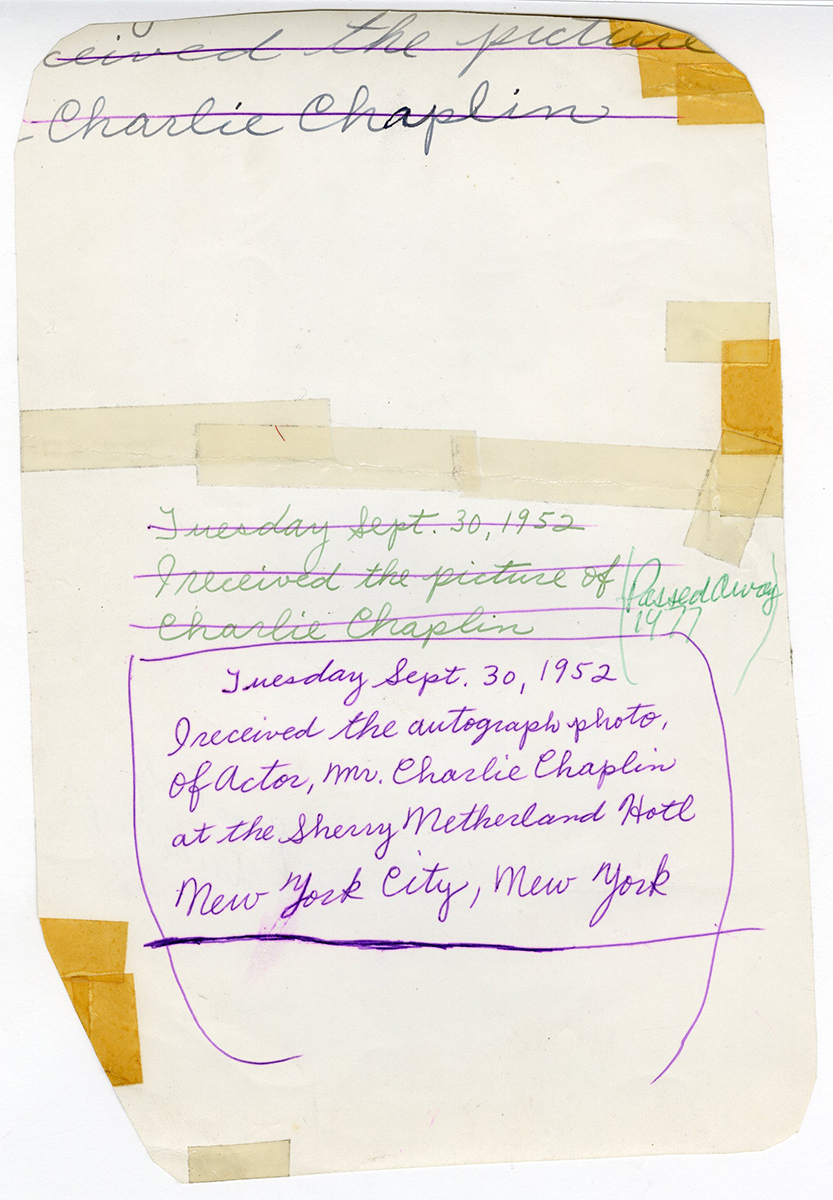 ceived the picture
Charlie Chaplin
Tuesday Sept. 30, 1952
I received the picture of
Charlie Chaplin
(Passed Away
1977)
Tuesday Sept. 30, 1952
I received the autograph photo,
Of Actor, Mr. Charlie Chaplin
at the Sherry Netherland Hotl
New York City, New York